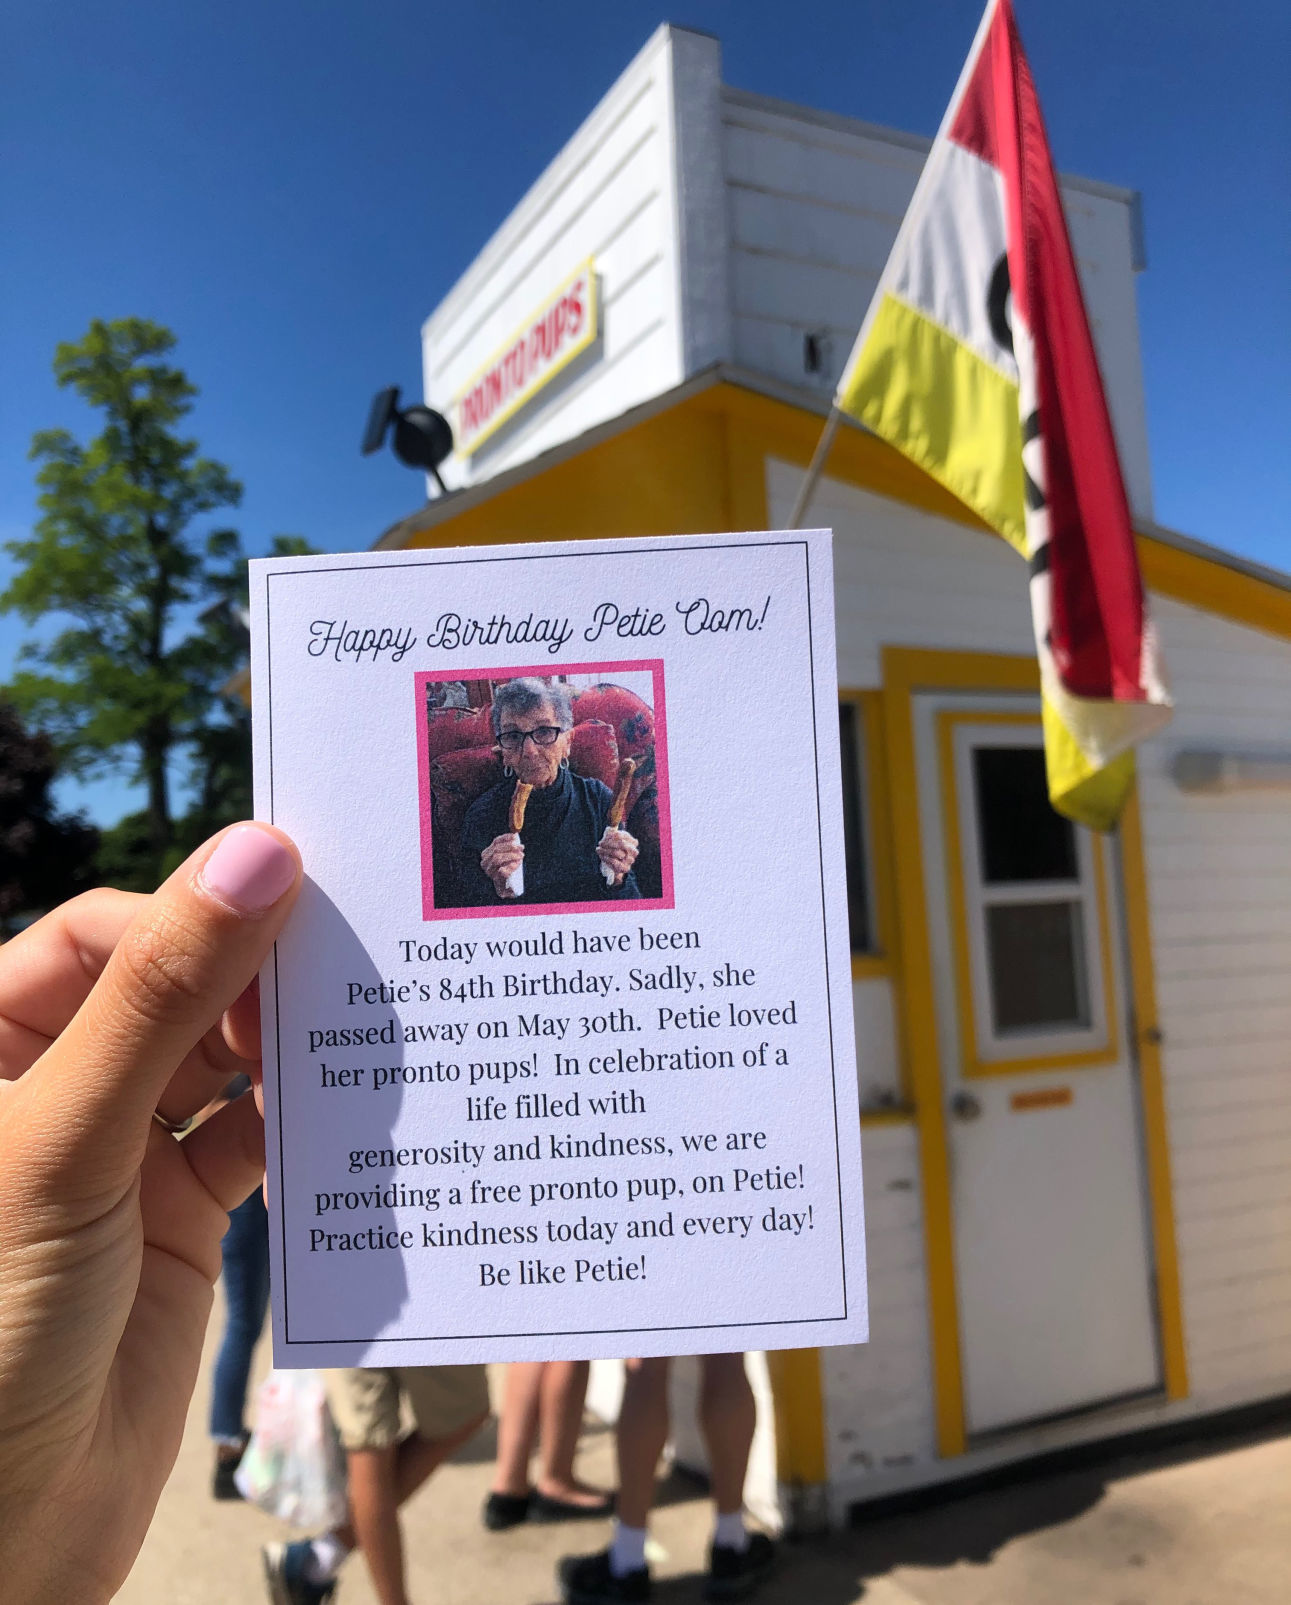 PRONTO PUPS
Happy Birthday Petie Oom!
Today would have been
Petie’s 84th Birthday. Sadly, she
passed away on May 30th.  Petie loved
her pronto pups!  In celebration of a
life filled with
generosity and kindness, we are
providing a free pronto pup, on Petie!
Practice kindness today and every day!
Be like Petie!